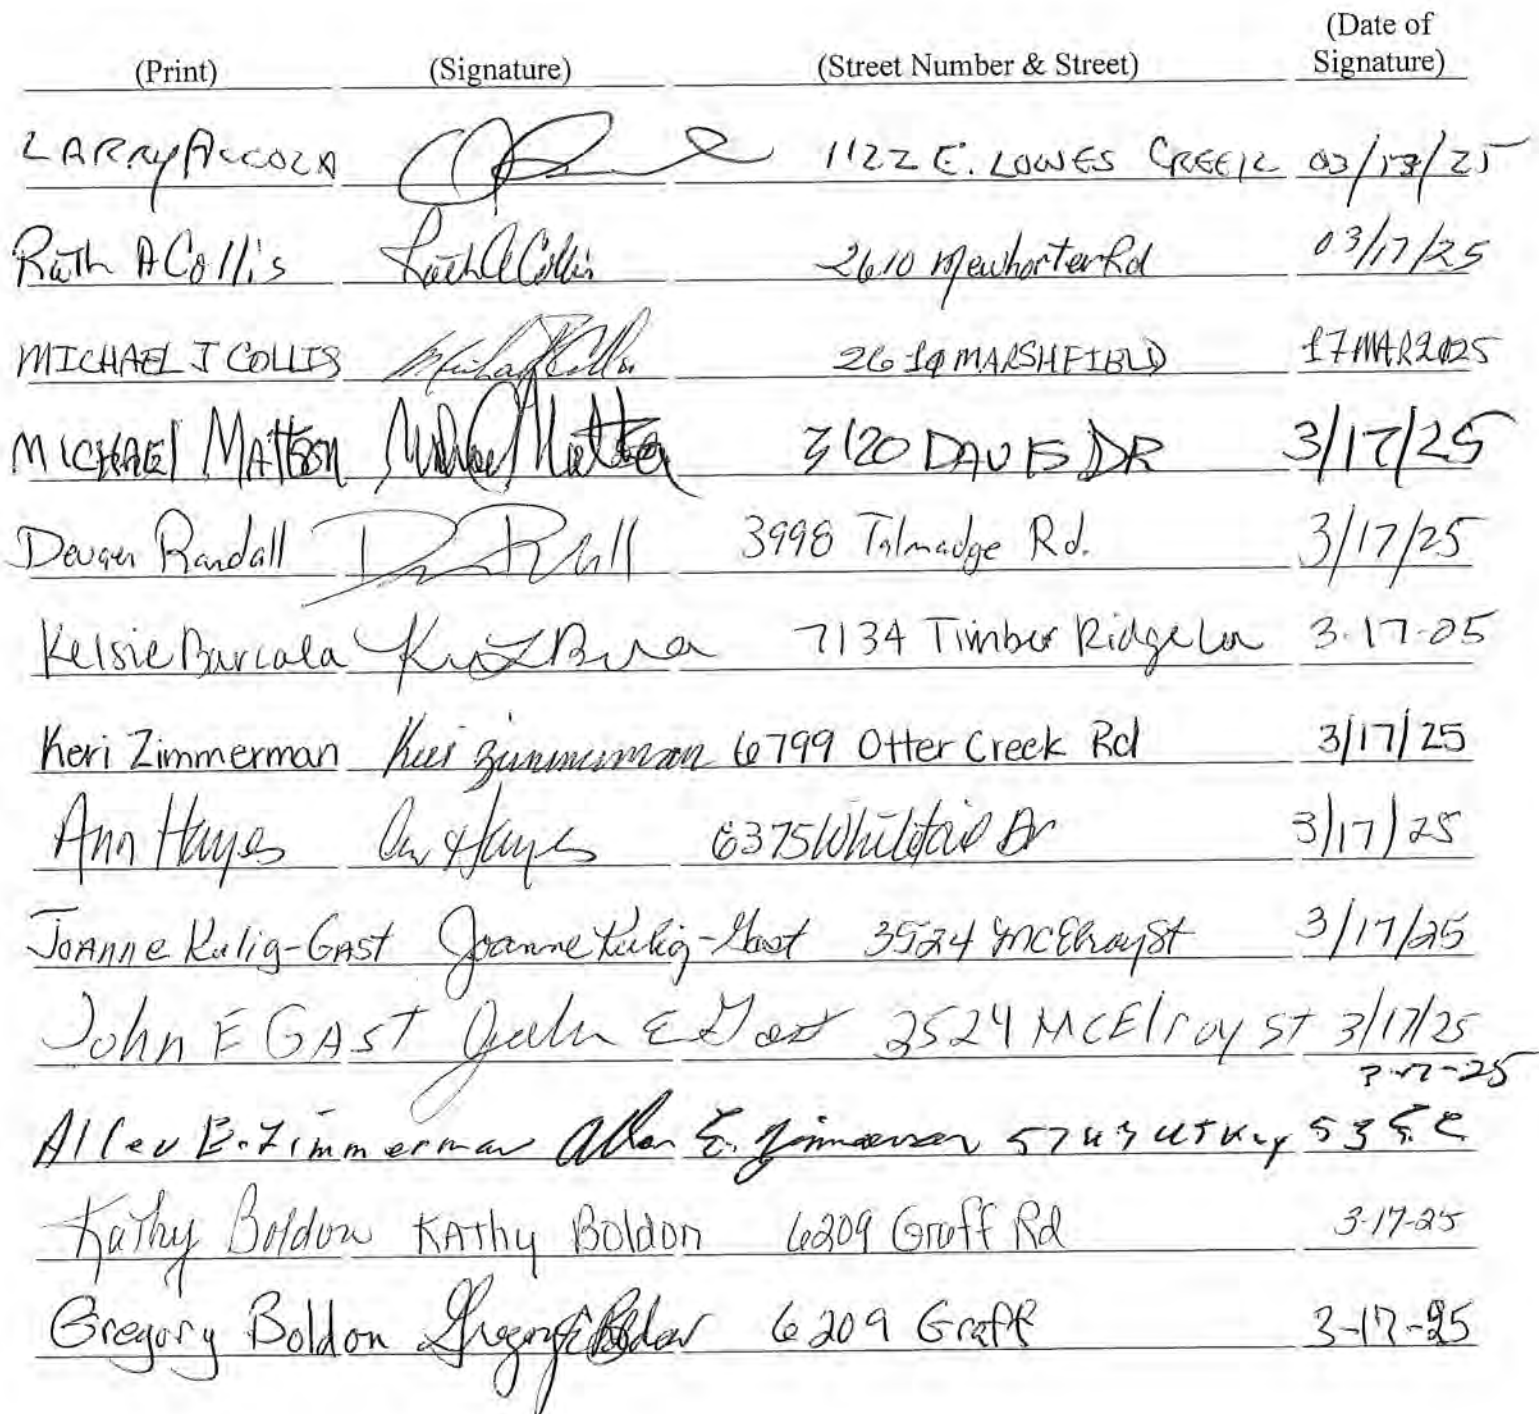 (Print) (Signature) (Street Number & Street) (Date of Signature)
LARRY ACCOLA 1122 E. LOWES CREEK 03/17/25
Ruth A Collis Ruth A Collis 2610 Mewhorter Rd 03/17/25
MICHAEL J COLLIS Michael J Collis 2610 MARSHFIELD 17 MAR 2025
MICHAEL MATTSON Michael Mattson 3120 DAVIS DR 3/17/25
Randall 3998 Talmadge Rd. 3/17/25
Kelsie 7134 Timber Ridge Ln 3-17-25
Keri Zimmerman Keri Zimmerman 6799 Otter Creek Rd 3/17/25
Ann Hayes Ann Hayes 6375 Whitetail Dr 3/17/25
JoAnne Kulig-GAST Joanne Kulig-Gast 3524 McElroy St 3/17/25
John E GAST John E Gast 2524 McElroy ST 3/17/25
3-17-25
Allen E. Zimmerman Allen E. Zimmerman 53
Kathy Boldon KAThy BOldon 6209 Graff Rd 3-17-25
Gregory Boldon Gregory Boldon 6209 Graff 3-17-25